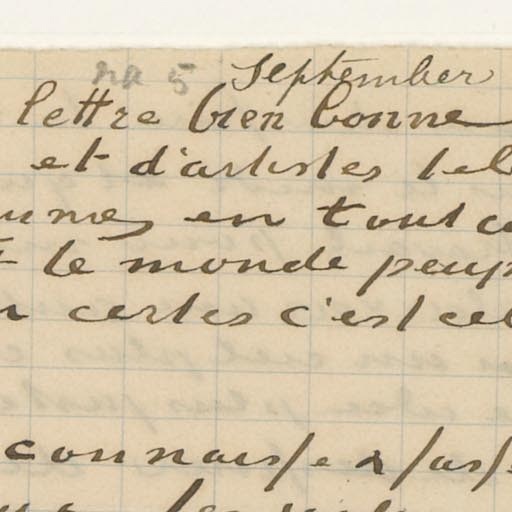 na 5 September
lettre bien bonne
et d'artistes tel
umes en tout ce
t le monde peup
n certes c'est cel
connaisse à fas